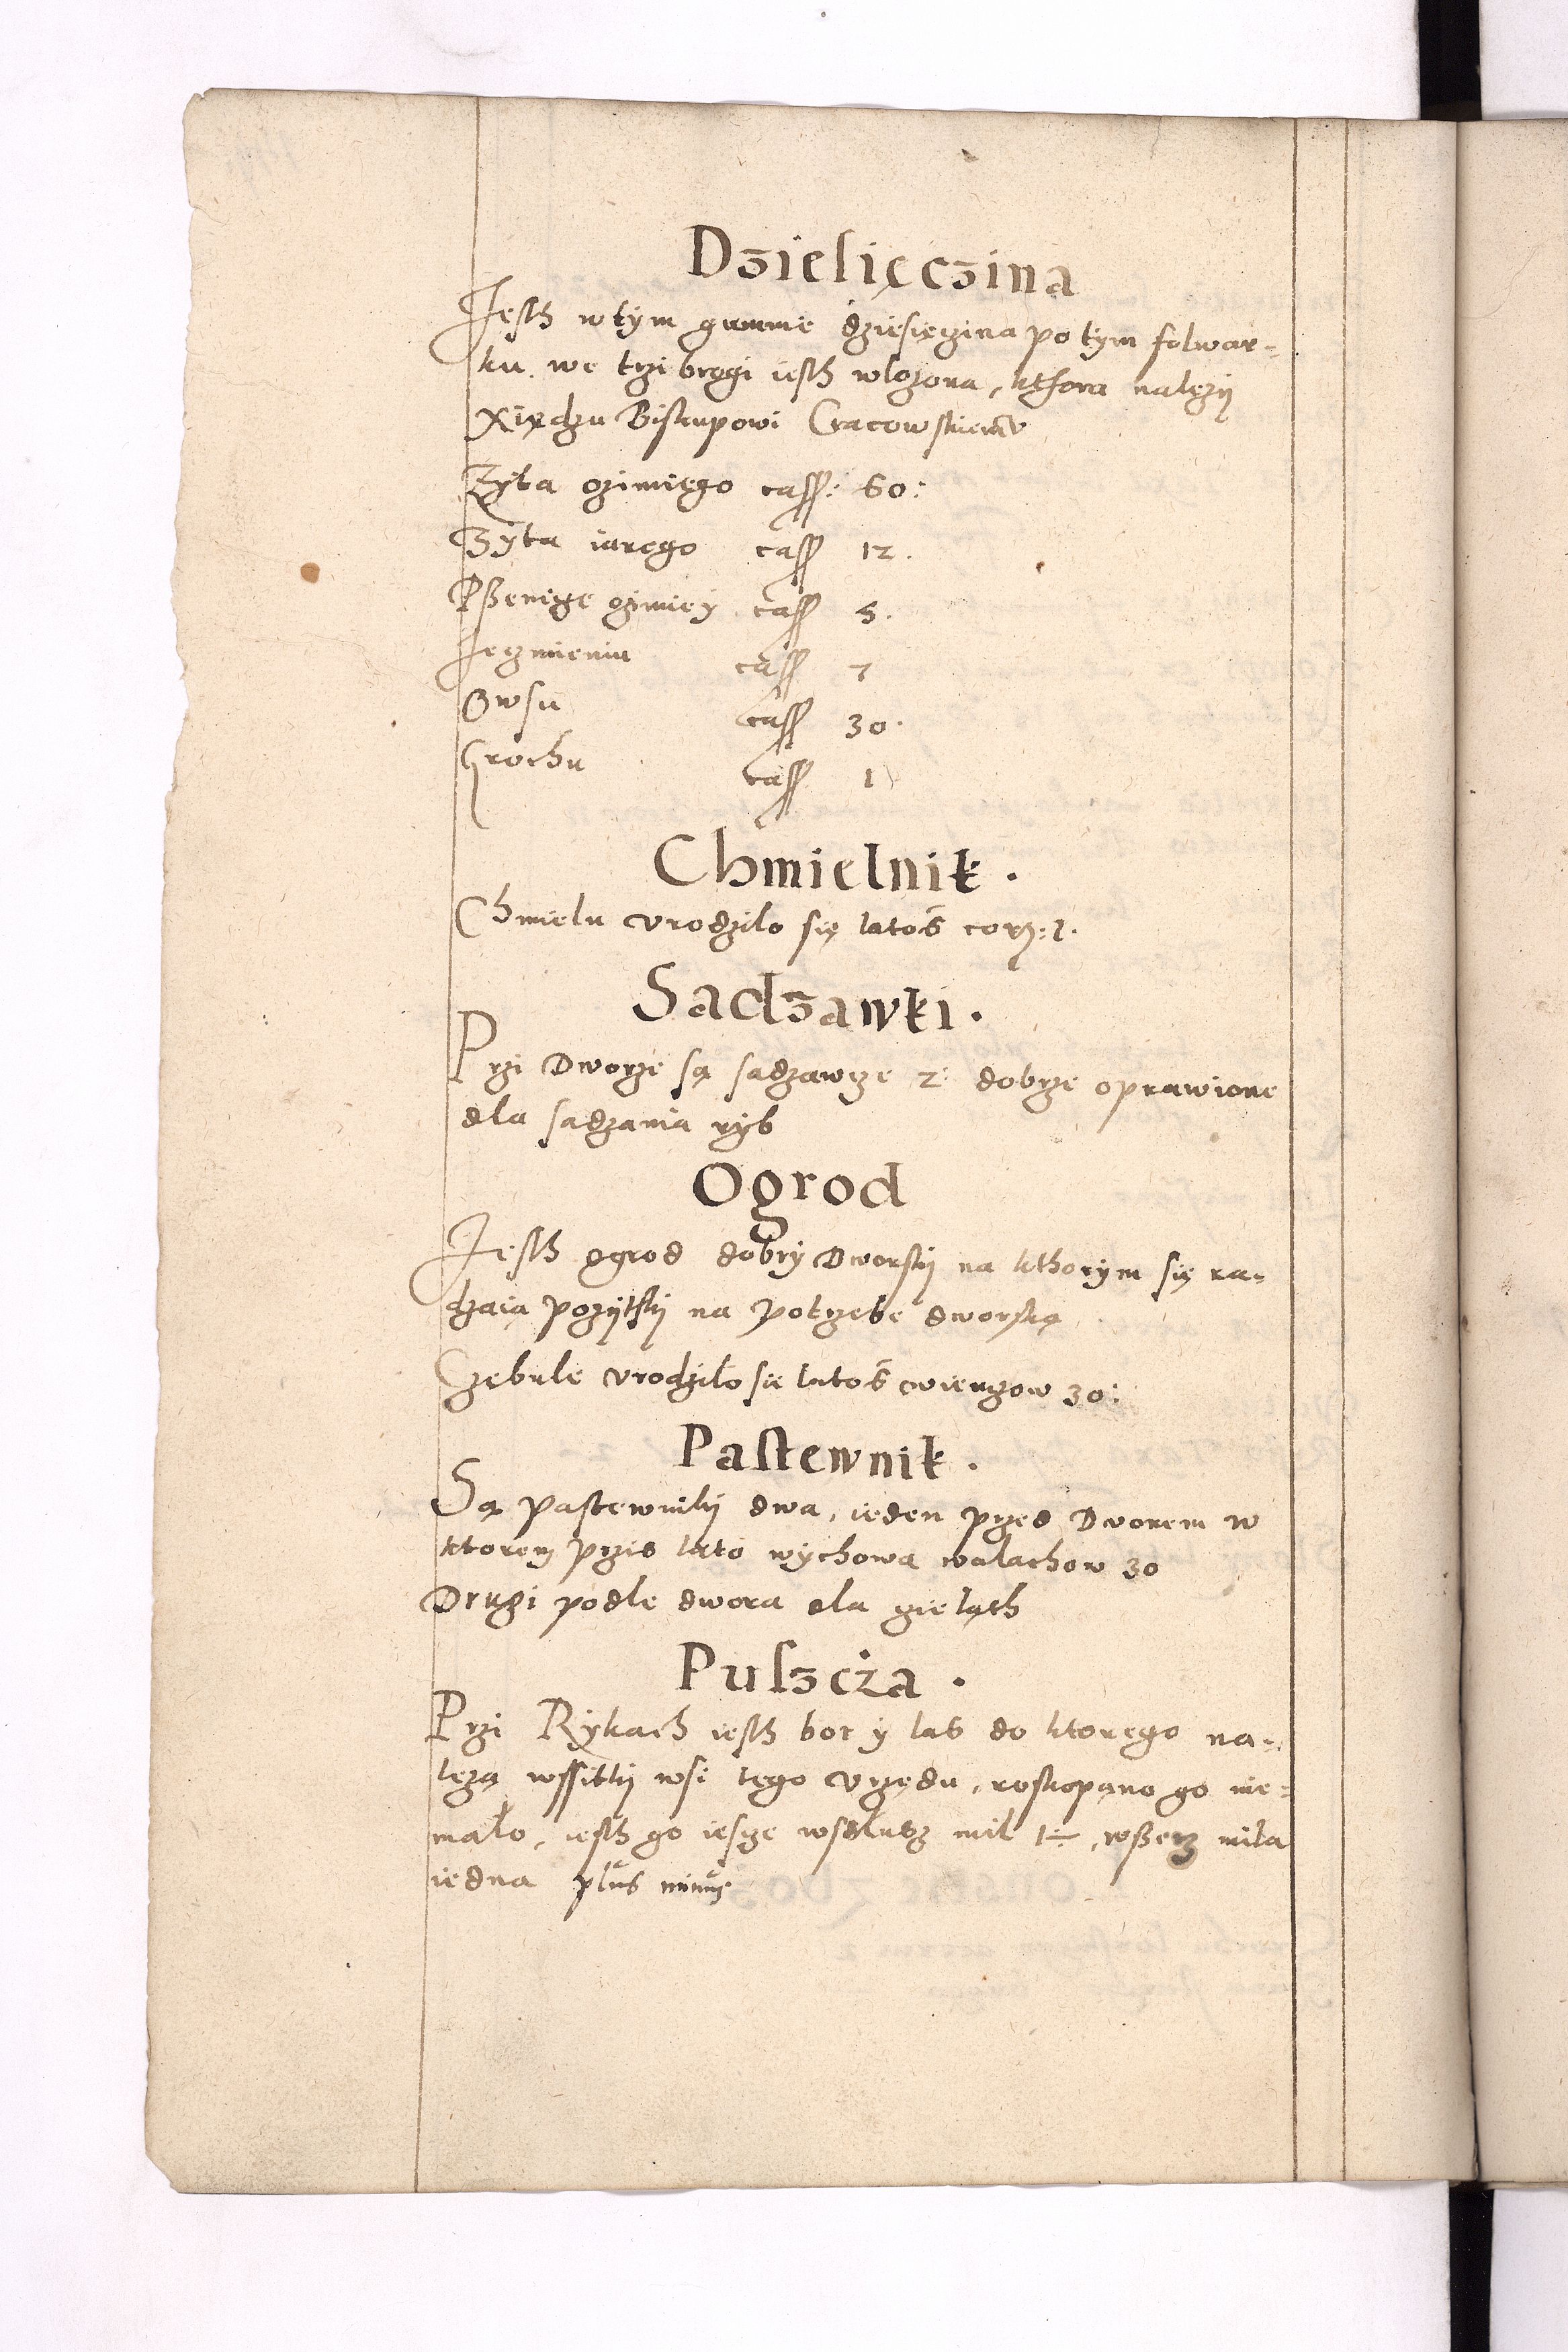 Dziesięczina
Jesth w tym gumnie dziesięczina po tym folwar=
ku we trzi brogi iesth wlozona, kthora nalezy
Xiędzu Biskupowi Cracowskiemu
Zyta ozimiego cass: 60:
Zyta iarego cass 12.
Pszenicze ozimiey cass 5.
Jeczmieniu cass 7
Owsu cass 30.
Grochu cass 1
Chmielnik.
Chmielu urodzilo się latoś corz: 1.
Sadzawki.
Przi Dworze są sadzawcze 2: dobrze oprawione
dla sadzania ryb
Ogrod
Jesth ogrod dobry Dworsky na kthorym się ra=
dzaią pozytky na potrzebe dworską
Czebule urodziło sie latoś wienczow 30:
Pastewnik.
Są pastewniky dwa, ieden przed Dworem w
ktorem przis lato wychowa walachow 30
Drugi podle dwora dla cieląth
Puszcża.
Przi Rykach iesth bor y las do ktorego na=
lezą wssitky wsi tego urzędu, roskopano go nie=
mało, iesth go iescze wsdlusz mil 1÷, wszerz mila
iedna plus minus